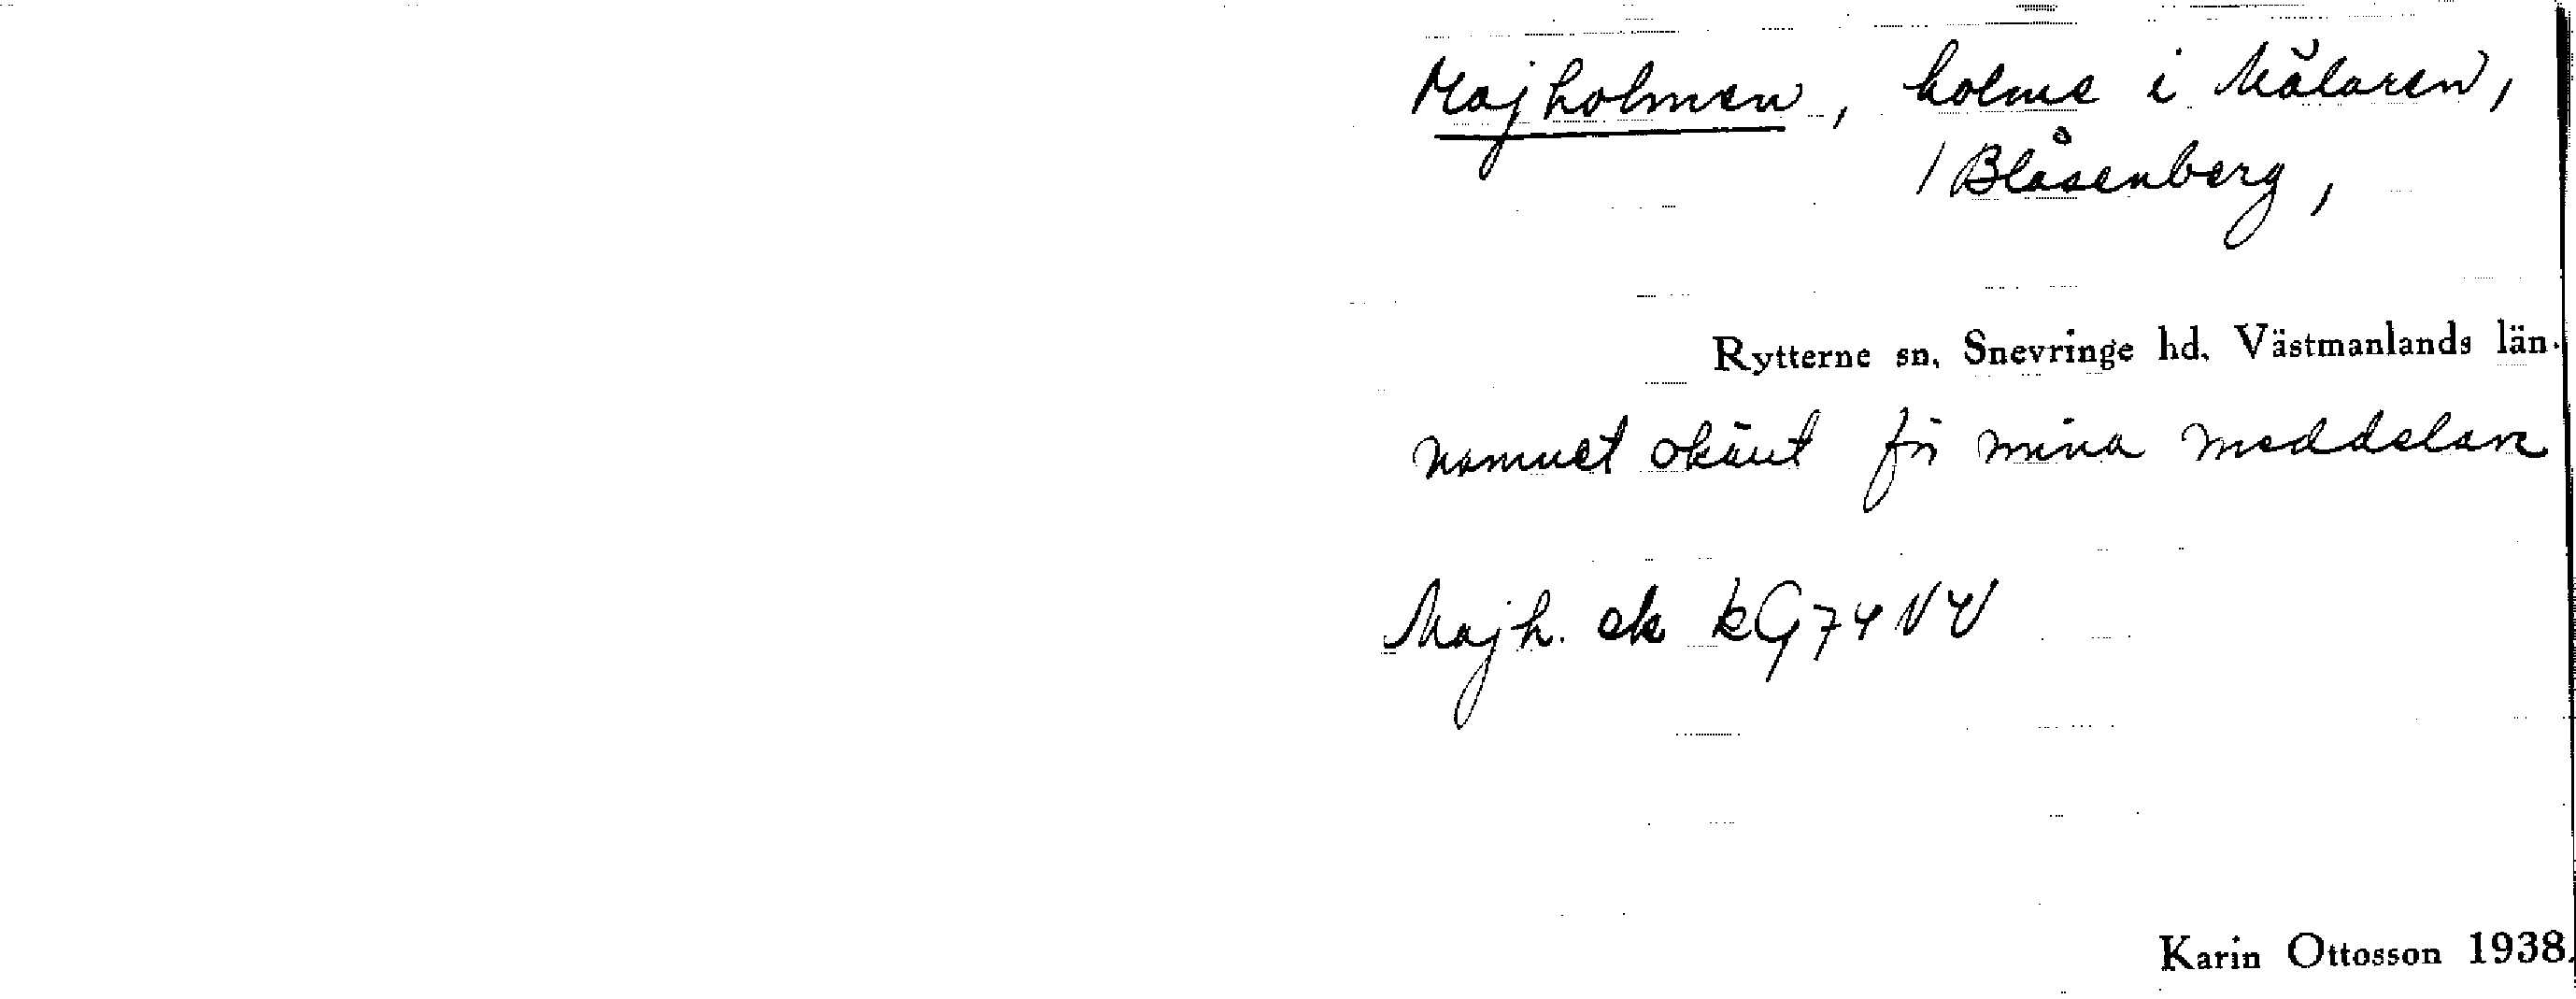 Majholmen, holme i Mälaren,
/ Blåsenberg,
Rytterne sn. Snevringe hd. Västmanlands län.
namnet okänt för mina meddelare
Majh. ek kG74 NV
Karin Ottosson 1938.